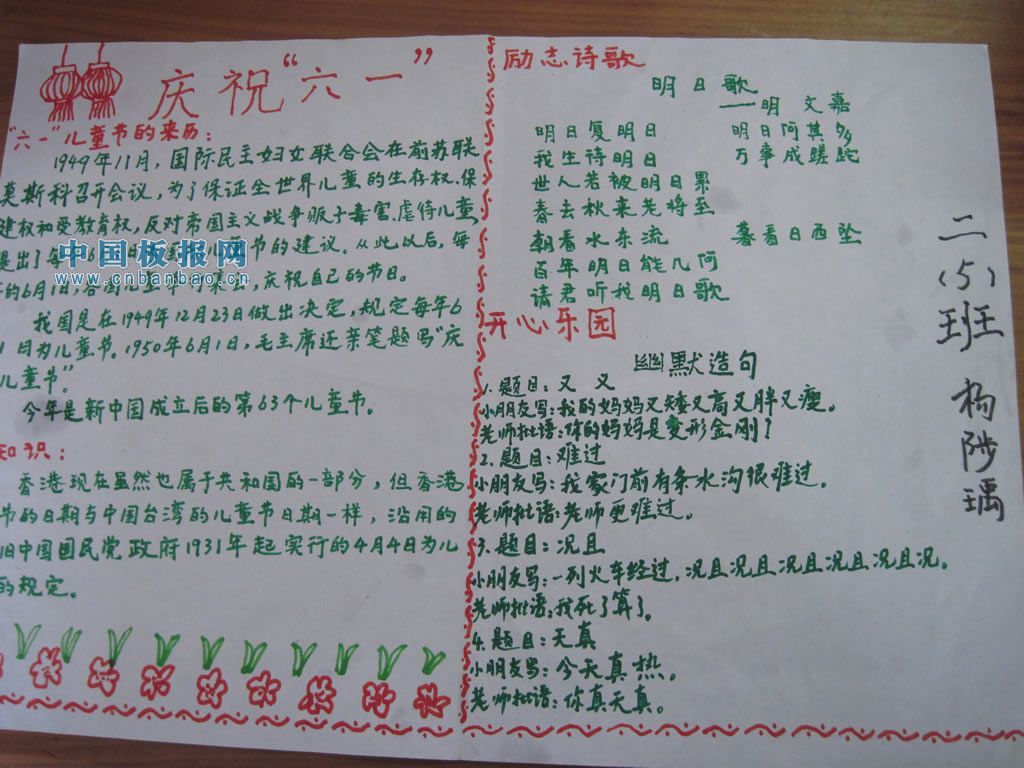 庆祝“六一”
“六一”儿童节的来历：
1949年11月，国际民主妇女联合会在前苏联
莫斯科召开会议，为了保证全世界儿童的生存权、保
健权和受教育权，反对帝国主义战争贩子毒害、虐待儿童，
提出了每 6 节的建议。从此以后，每
的6月1日，各国儿童 集 ，庆祝自己的节日。
我国是在1949年12月23日做出决定，规定每年6
1日为儿童节。1950年6月1日，毛主席还亲笔题写“庆
儿童节”。
今年是新中国成立后的第63个儿童节。
知识：
香港现在虽然也属于共和国的一部分，但香港
节的日期与中国台湾的儿童节日期一样，沿用的
旧中国国民党政府1931年起实行的4月4日为儿
的规定。
中国板报网
www.cnbanbao.cn
励志诗歌
明日歌
——明 文嘉
明日复明日 明日何其多
我生诗明日 万事成蹉跎
世人若被明日累
春去秋来老将至
朝看水东流 暮看日西坠
百年明日能几何
请君听我明日歌
开心乐园
幽默造句
1.题目：又 又
小朋友写：我的妈妈又矮又高又胖又瘦。
老师批语：你的妈妈是变形金刚？
2.题目：难过
小朋友写：我家门前有条水沟很难过。
老师批语：老师更难过。
3.题目：况且
小朋友写：一列火车经过，况且况且况且况且况且况。
老师批语：我死了算了。
4.题目：天真
小朋友写：今天真热。
老师批语：你真天真。
二（5）班 杨陟瑀